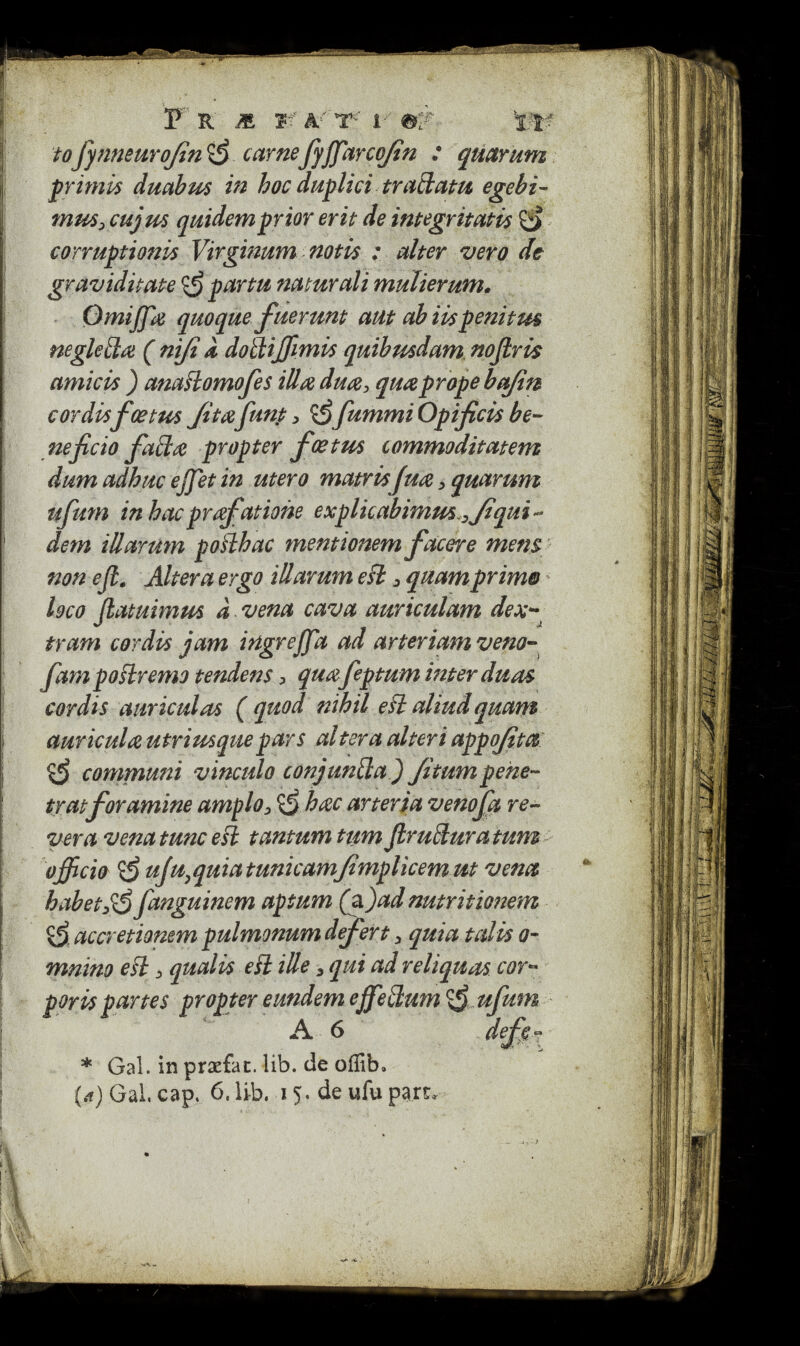 PRÆFATIO. 11
to synneurosin & carne syssarcosin : quarum
primis duabus in hoc duplici tractatu egebi-
mus, cujus quidem prior erit de integritatis &
corruptionis Virginum notis : alter vero de
graviditate & partu naturali mulierum.
Omissæ quoque fuerunt aut ab iis penitus
neglectæ ( nisi à doctissimis quibusdam nostris
amicis ) anastomoses illæ duæ, quæ prope basin
cordis fœtus sitæ sunt, & summi Opificis be-
neficio factæ propter fœtus commoditatem
dum adhuc esset in utero matris suæ, quarum
usum in hac præfatione explicabimus, siqui-
dem illarum posthac mentionem facere mens
non est. Altera ergo illarum est, quam primo
loco statuimus à vena cava auriculam dex-
tram cordis jam ingressa ad arteriam veno-
sam postremo tendens, quæ septum inter duas
cordis auriculas ( quod nihil est aliud quam
auriculæ utriusque pars altera alteri apposita
& communi vinculo conjuncta ) situm pene-
trat foramine amplo, & hæc arteria venosa re-
vera vena tunc est tantum tum structura tum
officio & usu, quia tunicam simplicem ut vena
habet, & sanguinem aptum (a) ad nutritionem
& accretionem pulmonum defert, quia talis o-
mnino est, qualis est ille, qui ad reliquas cor-
poris partes propter eundem effectum & usum
A 6 defe-
* Gal. in præfat. lib. de ossib.
(a) Gal. cap. 6. lib. 15. de usu part.